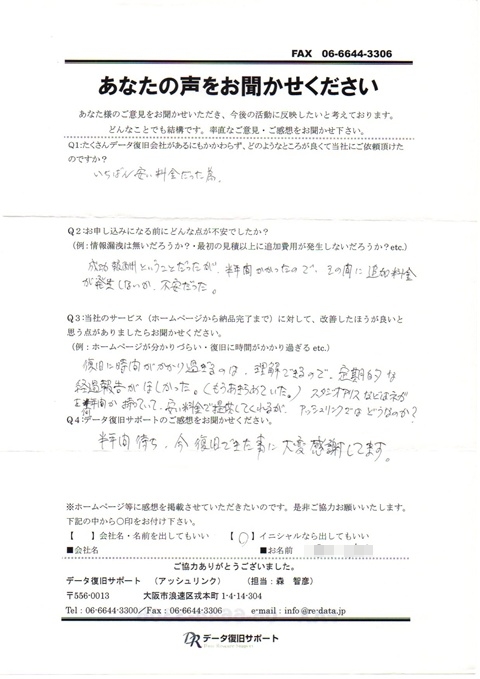 FAX 06-6644-3306
あなたの声をお聞かせください
あなた様のご意見をお聞かせいただき、今後の活動に反映したいと考えております。
どんなことでも結構です。率直なご意見・ご感想をお聞かせ下さい。
Q1:たくさんデータ復旧会社があるにもかかわらず、どのようなところが良くて当社にご依頼頂けた
のですか？
いちばん安い料金だった為。
Q2:お申し込みになる前にどんな点が不安でしたか？
(例：情報漏洩は無いだろうか？・最初の見積以上に追加費用が発生しないだろうか？etc.)
成功報酬ということだったが、半年間かかったので、その間に追加料金
が発生しないか、不安だった。
Q3：当社のサービス（ホームページから納品完了まで）に対して、改善したほうが良いと
思う点がありましたらお聞かせください。
(例：ホームページが分かりづらい・復旧に時間がかかり過ぎる etc.)
復旧に時間がかかり過ぎるのは、理解できるので、定期的な
経過報告がほしかった。(もうあきらめていた。) スタジオアリスなどはネガ
を半年間か持っていて、安い料金で提供してくれるが、アッシュリンクではどうなのか？
Q4:データ復旧サポートのご感想をお聞かせください。
半年間待ち、今復旧できた事に大変感謝してます。
※ホームページ等に感想を掲載させていただきたいのです。是非ご協力お願いいたします。
下記の中から〇印をお付け下さい。
【　】会社名・名前を出してもいい 【〇】イニシャルなら出してもいい
■会社名 ■お名前
ご協力ありがとうございました。
データ復旧サポート （アッシュリンク） （担当：森 智彦）
〒556-0013 大阪市浪速区戎本町 1-4-14-304
Tel：06-6644-3300／Fax：06-6644-3306 e-mail：info@re-data.jp
DR データ復旧サポート